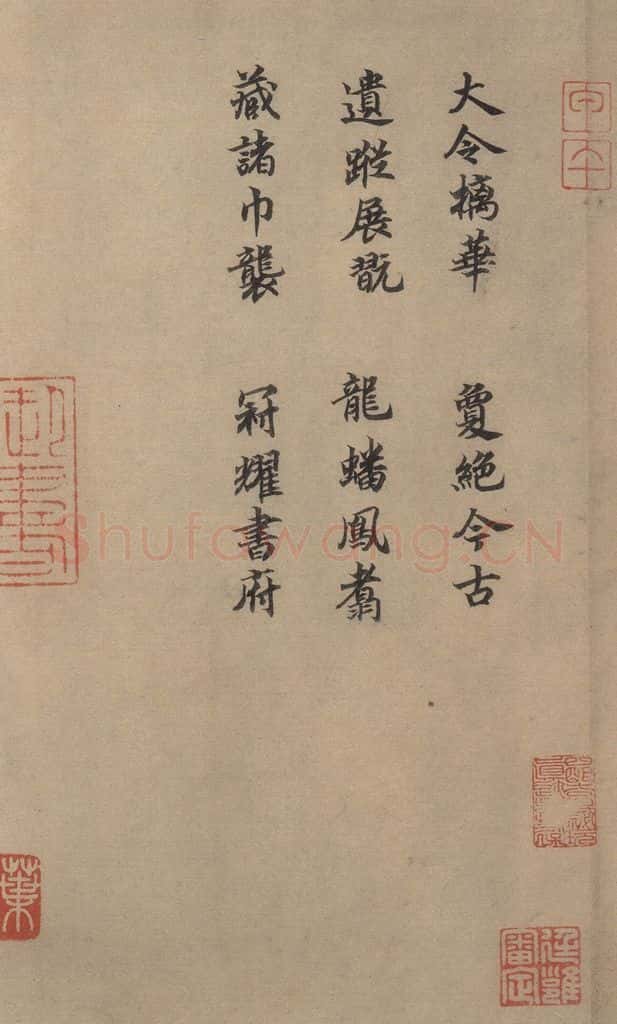 大令摛華 敻絶今古
遺蹤展翫 龍蟠鳳翥
藏諸巾襲 冠耀書府
Shufawang.CN